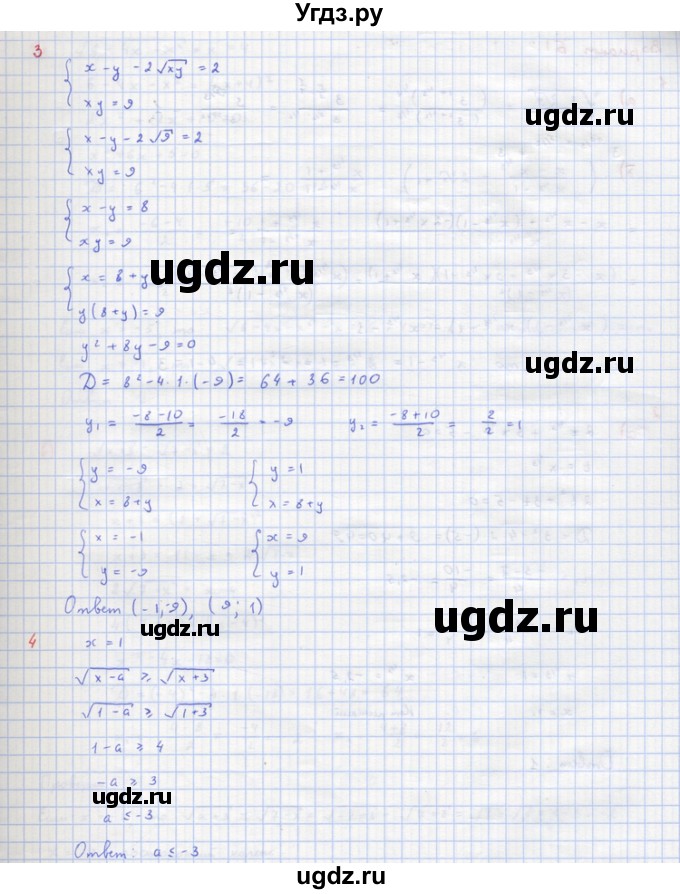 Угдз.ру
3
x - y - 2√xy = 2
xy = 9
ugdz.ru
x - y - 2√9 = 2
xy = 9
x - y = 8
xy = 9
ugdz.ru
x = 8 + y
y(8 + y) = 9
y² + 8y - 9 = 0
ugdz.ru
D = 8² - 4 · 1 · (-9) = 64 + 36 = 100
y₁ = (-8-10)/2 = -18/2 = -9 y₂ = (-8+10)/2 = 2/2 = 1
y = -9 y = 1
x = 8+y x = 8+y
x = -1 x = 9
y = -9 y = 1
Ответ (-1; -9), (9; 1)
ugdz.ru
ugdz.ru
4
x = 1
√x-a ≥ √x+3
√1-a ≥ √1+3
1-a ≥ 4
-a ≥ 3
ugdz.ru
a ≤ -3
Ответ: a ≤ -3
ugdz.ru